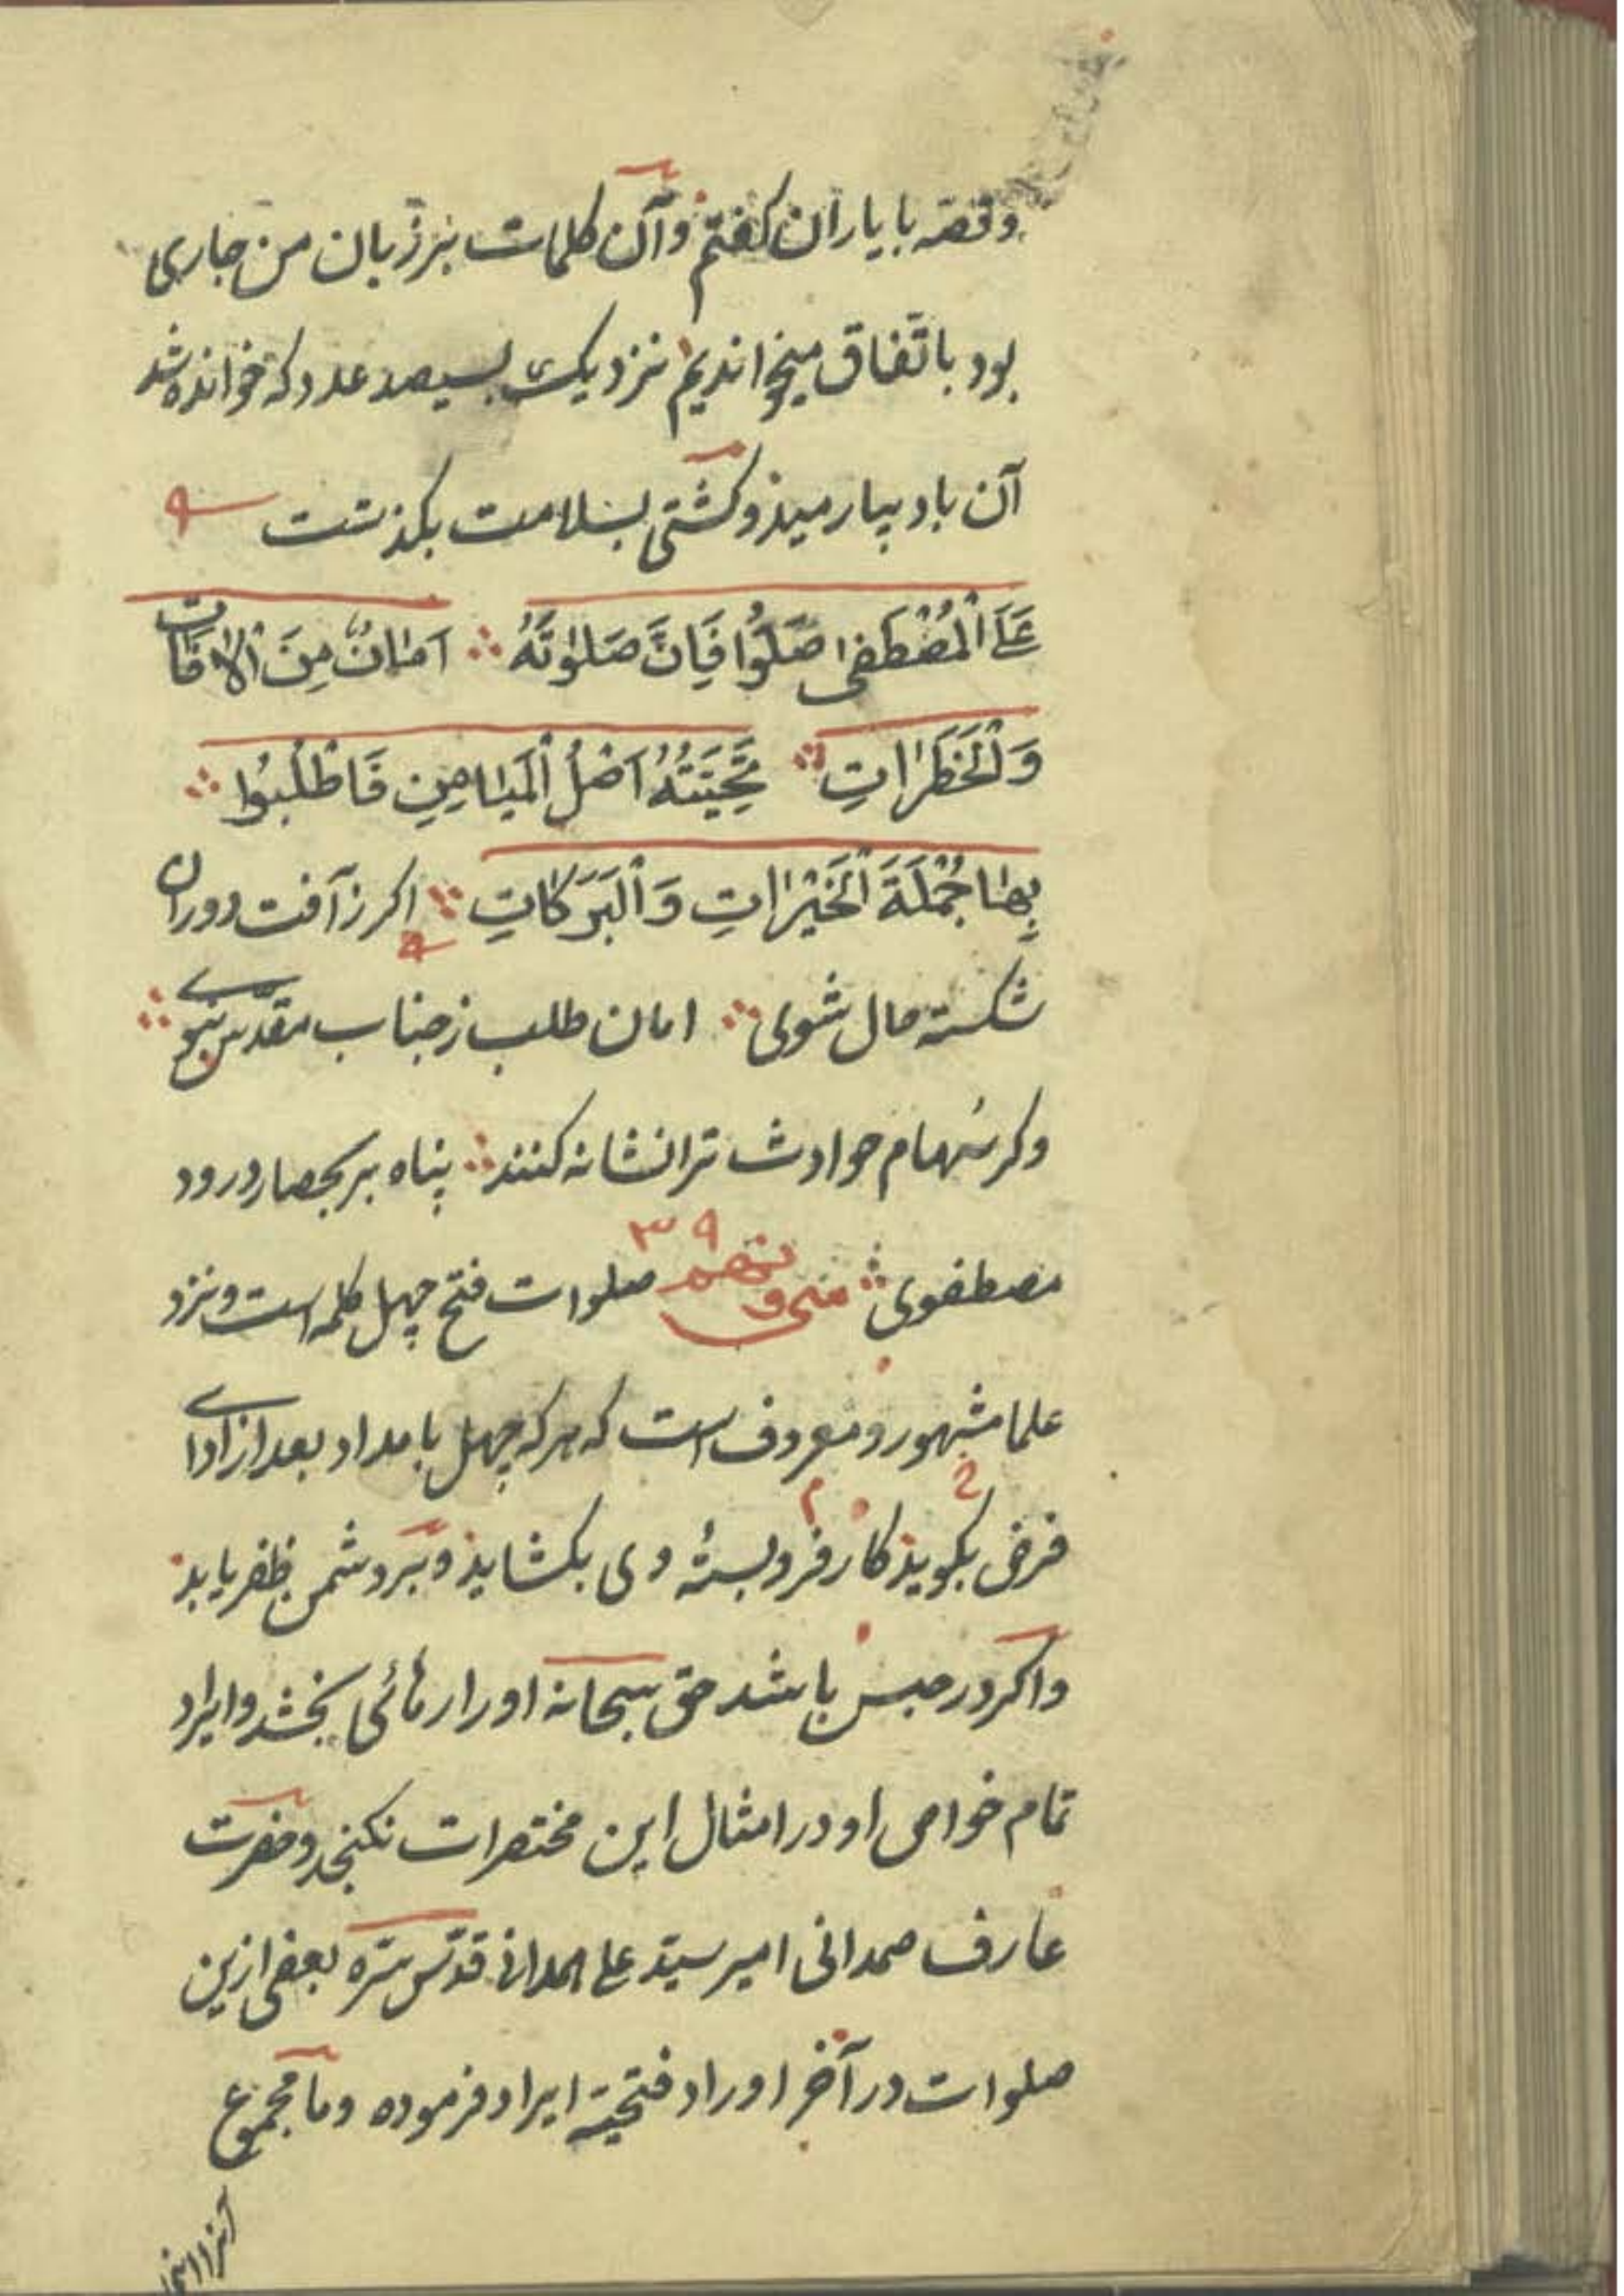 وقصّه با یاران کفتم وآن کلمات بر زبان من جاری
بود باتّفاق میخواندیم نزدیک بسیصد عدد که خوانده شد
آن باد بیارمیذ وکشتی بسلامت بکذشت
عَلَی الْمُصْطَفٰی صَلُّوا فَاِنَّ صَلٰوتَهُ ∴ اَمٰانٌ مِنَ الْاٰفٰاتِ
وَالْخَطَرٰاتِ ∴ تَحِیَّتُهُ اَصْلُ الْمَیٰامِنِ فَاطْلُبُوا ∴
بِهٰا جُمْلَةَ الْخَیْرٰاتِ وَالْبَرَکٰاتِ ∴ اکر ز آفت دوران
شکسته حال شوی ∴ امان طلب ز جناب مقدّس نبوی ∴
وکر سهام حوادث ترا نشانه کنند ∴ پناه بر بحصار درود
مصطفوی ∴ سی و نهم ٣٩ صلوات فتح چهل کلمه است ونزد
علما مشهور و معروف است که هرکه چهل بامداد بعد از ادای
فرض بکویذ کار فروبستهٔ وی بکشایذ و بر دشمن ظفر یابذ
واکر در حبس باشد حق سبحانه اورا رهائی بخشد وایراد
تمام خواص او در امثال این مختصرات نکنجد وحضرت
عارف صمدانی امیر سیّد علی همدانی قدّس سّره بعضی ازین
صلوات در آخر اوراد فتحیّه ایراد فرموده وما مجموع